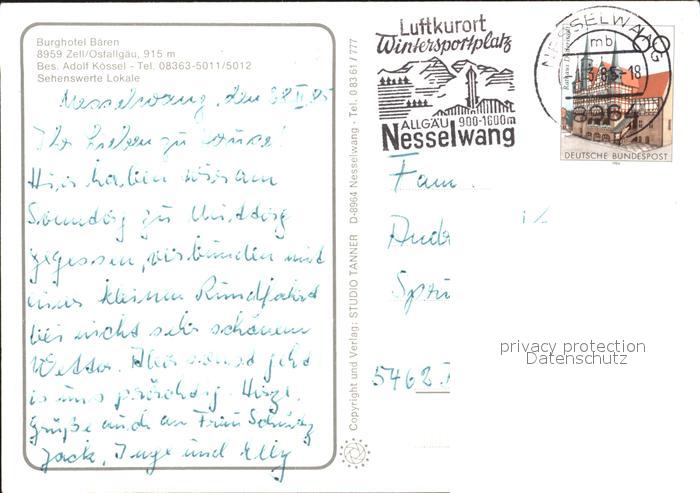 Burghotel Bären
8959 Zell/Ostallgäu, 915 m
Bes. Adolf Kössel - Tel. 08363-5011/5012
Sehenswerte Lokale
Nesselwang, den
Ihr Lieben zu Hause!
Hier haben wir am
Sonntag zu Mittag
gegessen, verbunden mit
einer kleinen Rundfahrt
bei nicht sehr schönem
Wetter. Aber sonst geht
es uns prächtig. Herzl.
Grüße auch an Frau
Jack, Inge und Elly
Copyright und Verlag: STUDIO TANNER D-8964 Nesselwang - Tel. 0 83 61 / 777
Luftkurort
Wintersportplatz
ALLGÄU 900-1600m
Nesselwang
NESSELWANG
mb
-18
8964
60
DEUTSCHE BUNDESPOST
Fam.
Andr
5462
privacy protection
Datenschutz